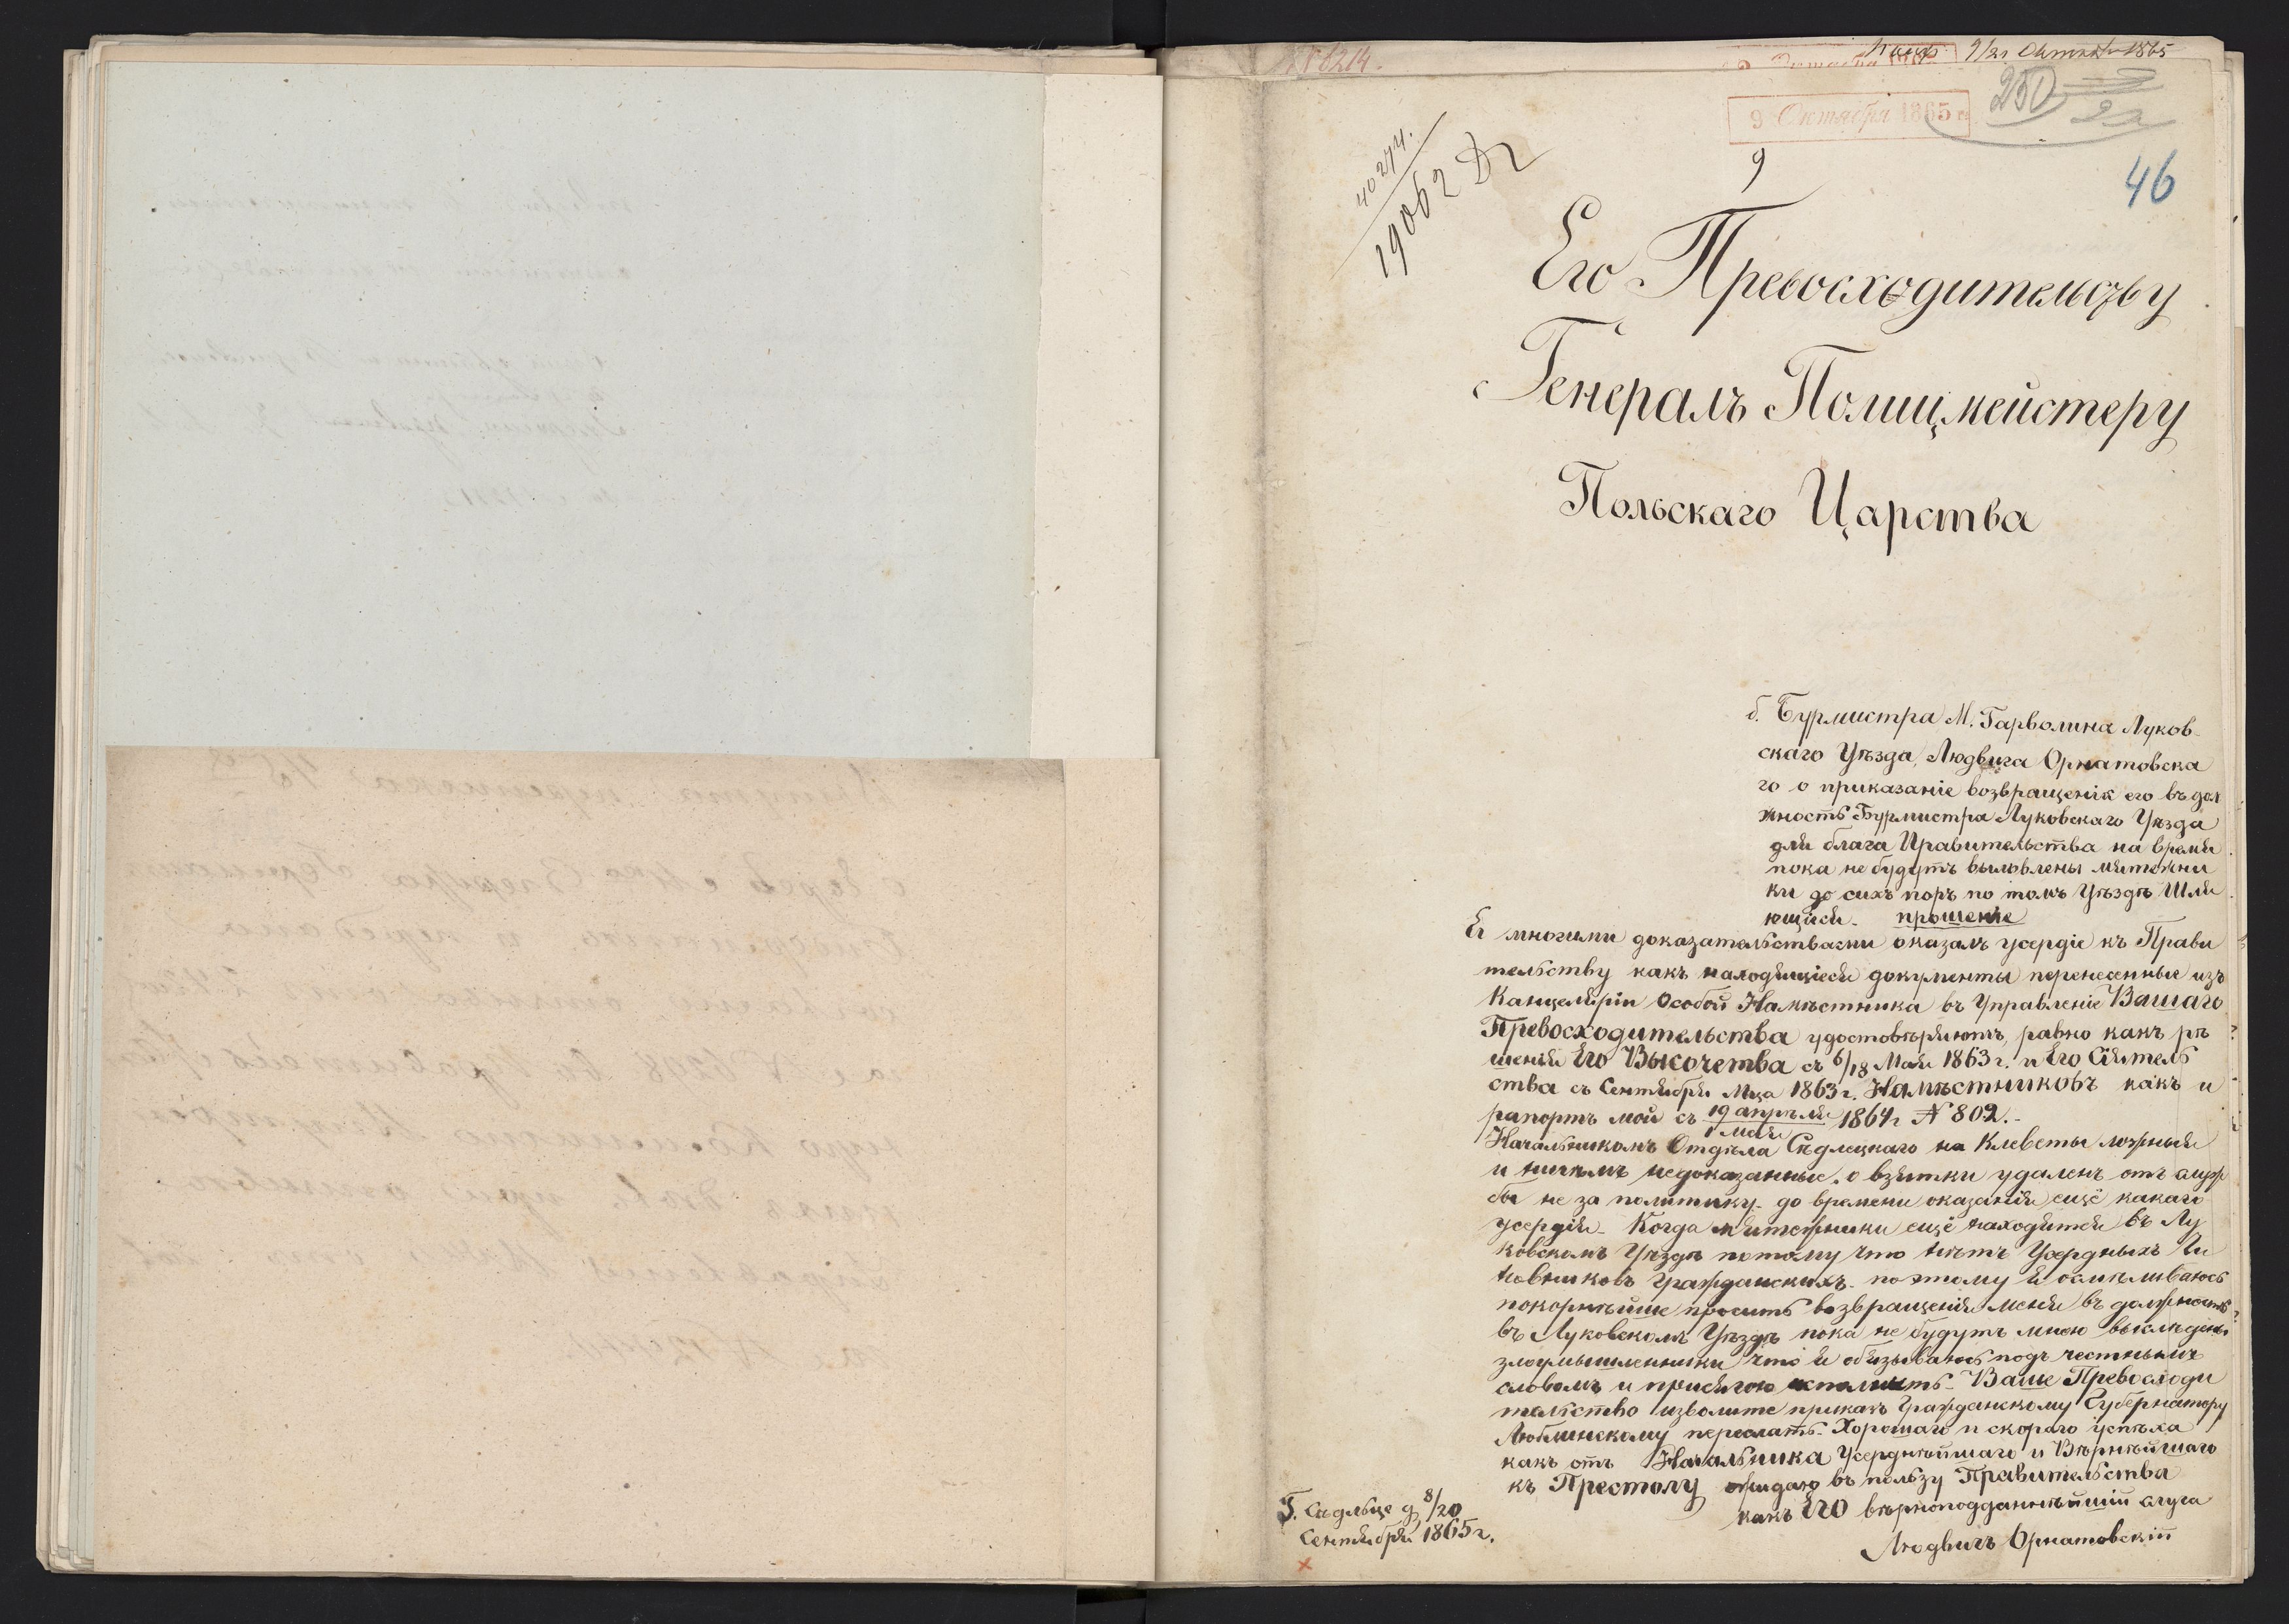 9/21 Октября 1865
№ 8214.
9 Октября 1865 г.
250
22
40274.
19062
9
46
Его Превосходительству
Генералъ Полицмейстеру
Польскаго Царства
б. Бурмистра М. Гарволина Луков-
скаго Уѣзда, Людвига Орнатовска
го о приказаніе возвращенія его въ дол
жность Бурмистра Луковскаго Уѣзда
для блага Правительства на время
пока не будутъ выловлены мятежни
ки до сихъ поръ по томъ Уѣздѣ Шля
ющіися. прошеніе
Я многими доказательствами оказалъ усердіе къ Прави
тельству какъ находящіеся документы перенесенные изъ
Канцеляріи Особой Намѣстника въ Управленіе Вашаго
Превосходительства удостовѣряютъ, равно какъ рѣ
шенія Его Высочества съ 6/18 Мая 1863 г. и Его Сіятель
ства съ Сентября Мца 1863 г. Намѣстниковъ какъ и
рапортъ мой съ 19 апрѣля / 1 мая 1864 г № 802.-
Начальникомъ Отдѣла Сѣдлецкаго на Клеветы ложныя
и ничѣмъ недоказанные, о взятки удаленъ отъ служ
бы не за политику до времени оказанія ещё какаго
усердія. Когда мятежники ещё находятся въ Лу
ковскомъ Уѣздѣ потому что нѣтъ Усердныхъ Чи
новниковъ гражданскихъ. поэтому я осмѣливаюсь
покорнѣйше просить возвращенія меня въ должность
въ Луковскомъ Уѣздѣ пока не будутъ мною
злоумышленники что я обязываюсь подъ честнымъ
словомъ и присягою исполнить. Ваше Превосходи
тельство изволите приказъ Гражданскому Губернатору
Люблинскому переслать. Хорошаго и скораго успѣха
какъ отъ Начальника Усерднѣйшаго и Вѣрнѣйшаго
къ Престолу ожидаю въ пользу Правительства
какъ Его вѣрноподданнѣйшій слуга
Людвигъ Орнатовскій
Г. Сѣдльце д. 8/20
Сентября 1865 г.